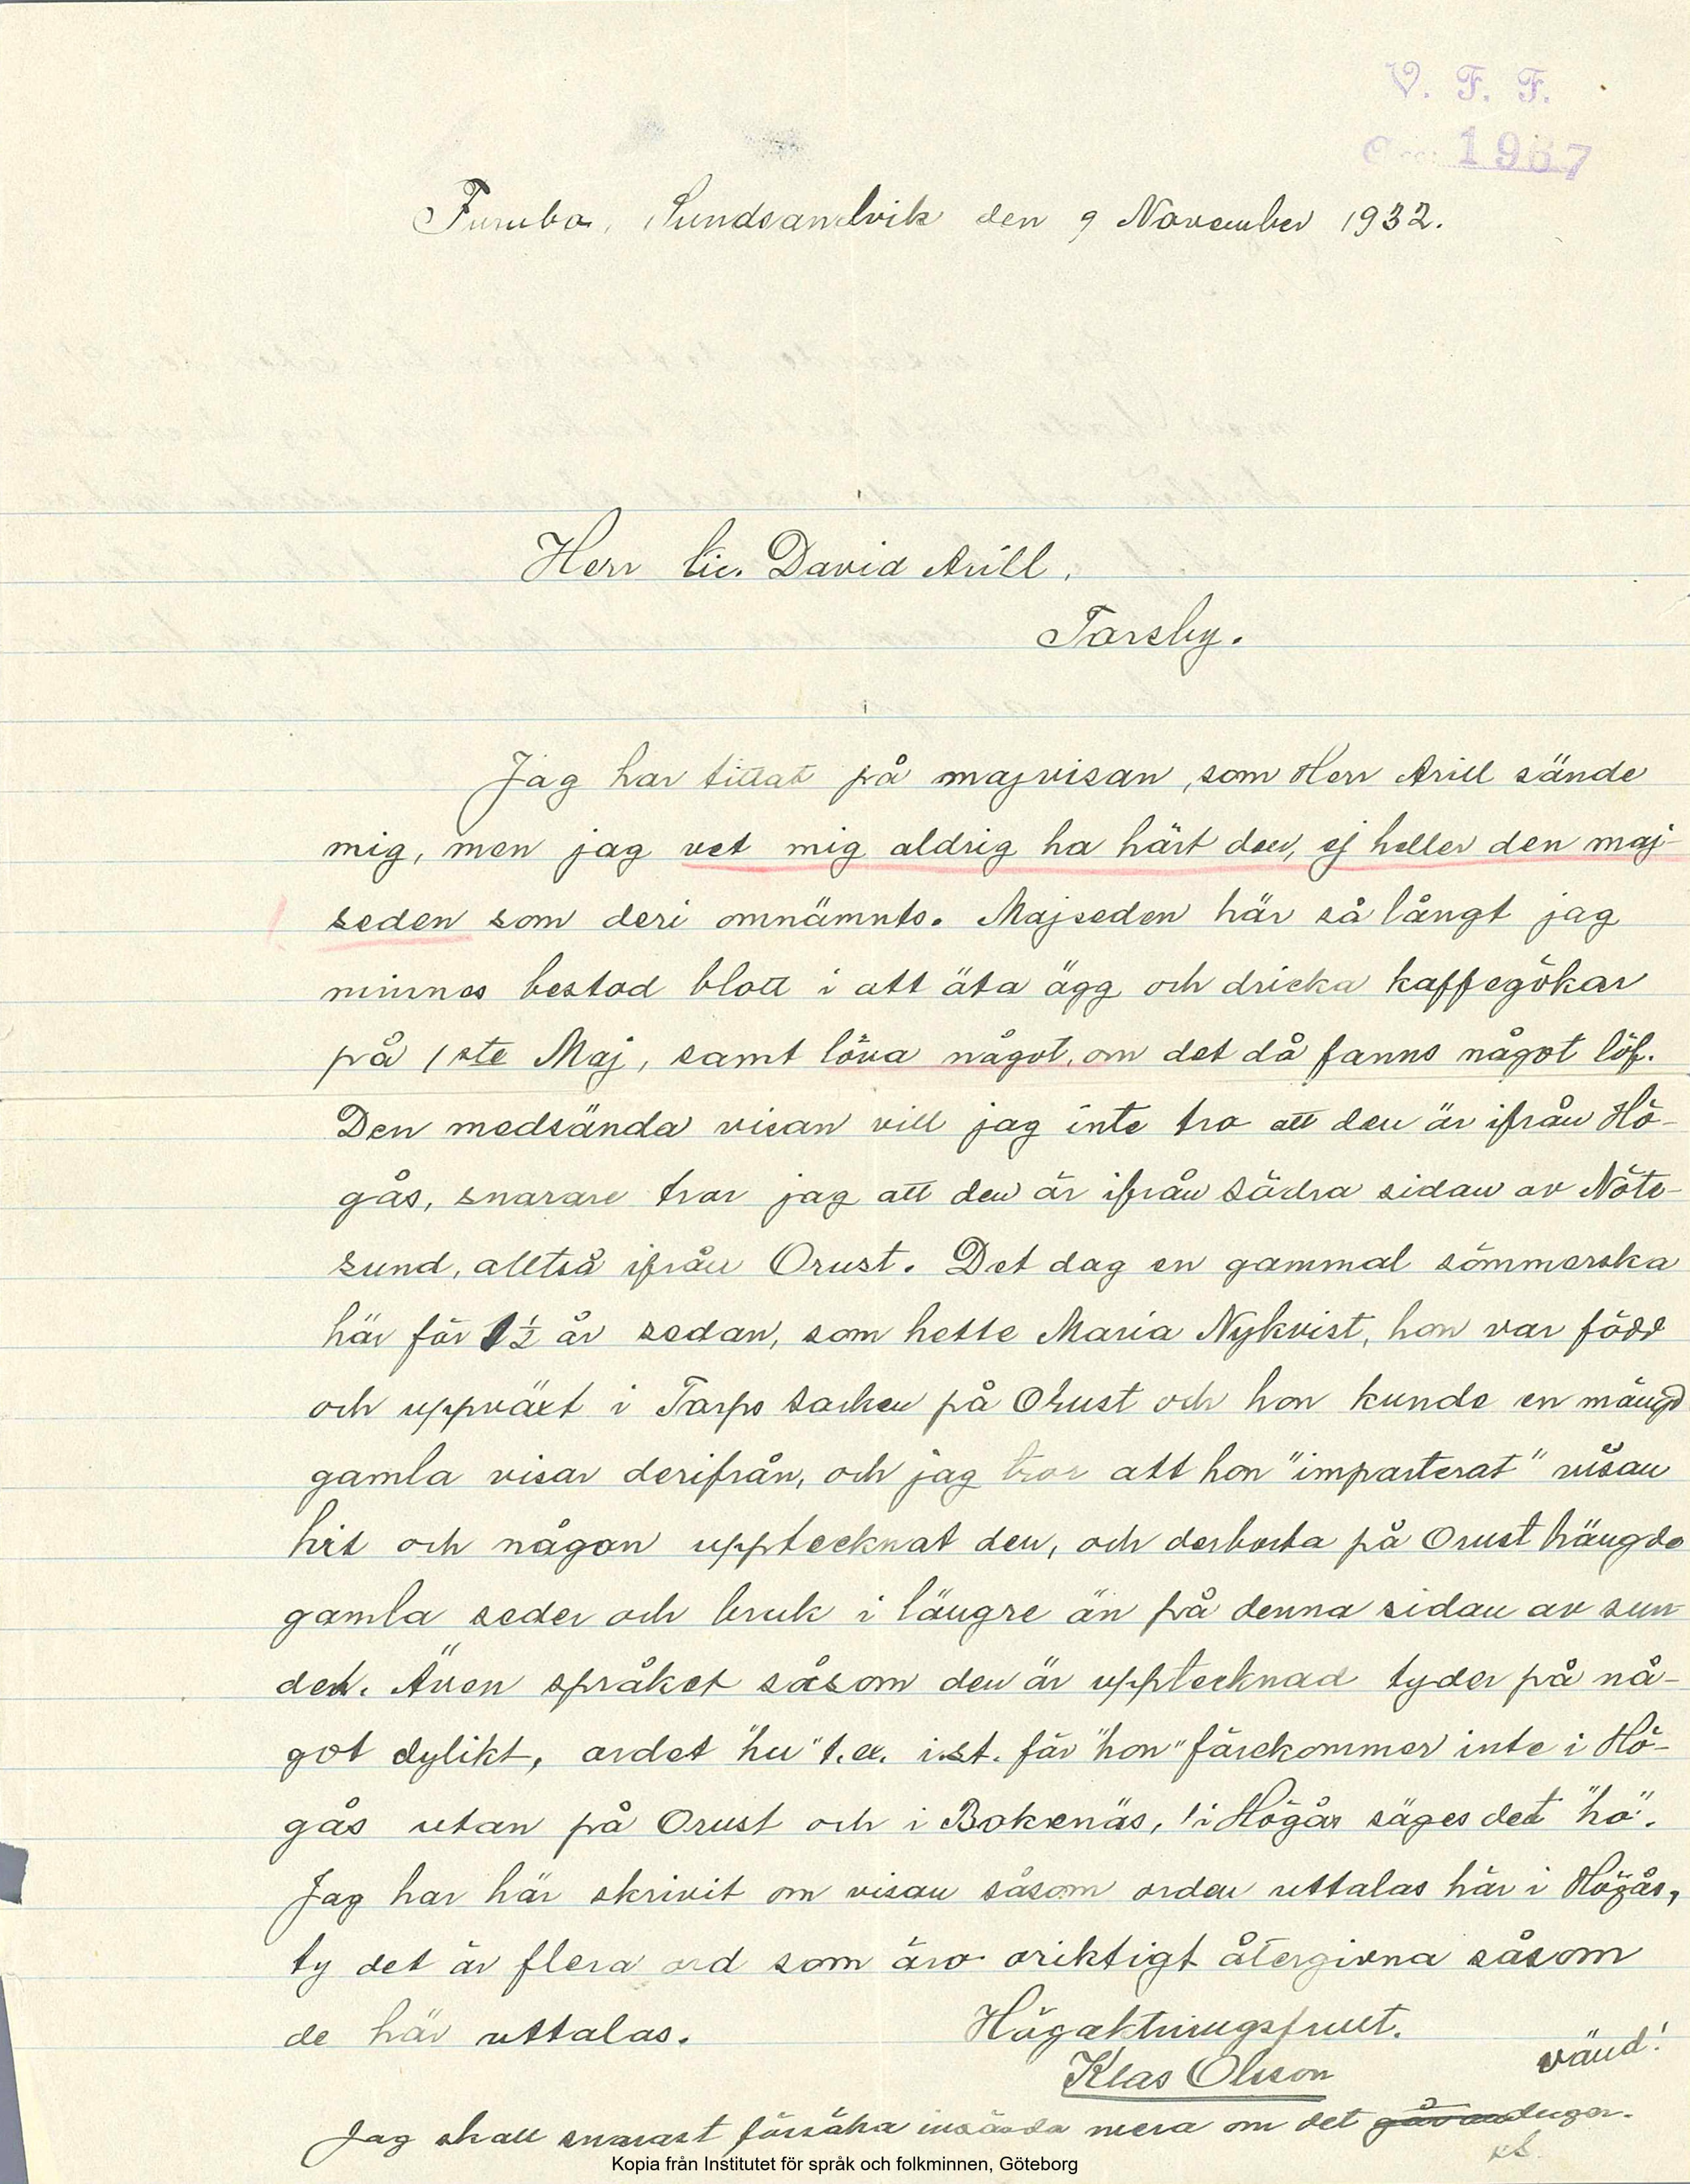 V. F. F.
1967
Furubo, Sundsandvik den 9 November 1932.
Herr lic. David Arill.
Torsby.
Jag har tittat på majvisan, som Herr Arill sände
mig, men jag vet mig aldrig ha hört den, ej heller den maj-
seden som deri omnämnts. Majseden här så långt jag
minnes bestod blott i att äta ägg och dricka kaffegökar
på 1ste Maj, samt löva något, om det då fanns något löf.
Den medsända visan vill jag inte tro att den är ifrån Hö-
gås, snarare tror jag att den är ifrån södra sidan av Nöte-
sund, alltså ifrån Orust. Det dog en gammal sömmerska
här för 1½ år sedan, som hette Maria Nykvist, hon var född
och uppväxt i Torps socken på Orust och hon kunde en mängd
gamla visor derifrån, och jag tror att hon "importerat" visan
hit och någon upptecknat den, och derborta på Orust hängde
gamla seder och bruk i längre än på denna sidan av sun-
det. Även språket såsom den är upptecknad tyder på nå-
got dylikt, ordet "hu" t.ex. i.st. för "hon" förekommer inte i Hö-
gås utan på Orust och i Bokenäs, i Högås säges det "hö".
Jag har här skrivit om visan såsom orden uttalas här i Högås,
ty det är flera ord som äro oriktigt återgivna såsom
de här uttalas.
Högaktningsfullt.
Klas Olsson
vänd!
Jag skall snarast försöka insända mera om det duger.